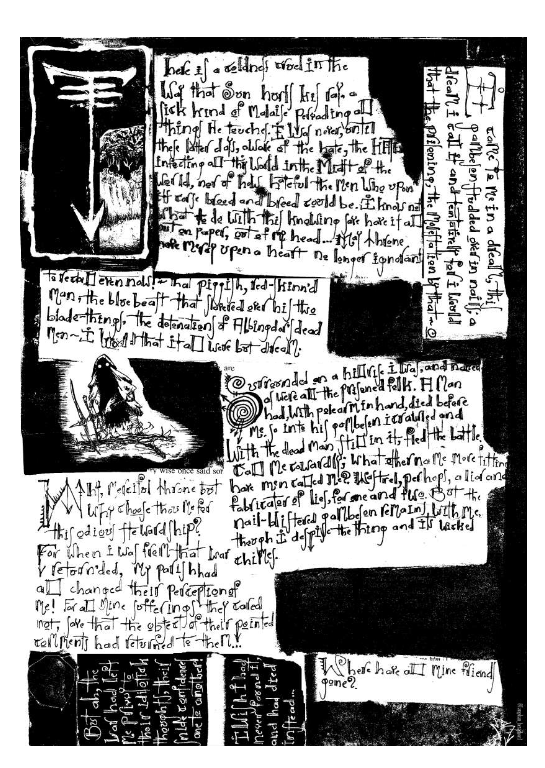 There is a coldness cruel in the
Way that Son horts his ray, a
sick kind of Malaise Pervading all
things He touches. I Was never, until
these latter days, aware of the hate, the HATE
infecting all the World in the Midst of the
World, nor of how hateful the Men Who upon
it curse breed and breed could be. I know not
What to do With this knowing save have it all
out on paper, out of my head... May throne
have Mercy upon a heart no longer ignorant
It came to me in a dream, this
gambeson studded over in nails, a
dream I call it and tentatively for I would
that the prisoning, the molestation by that
to recall even now - that piggish, red-skinn'd
Man, the blue beast that slavered over his two
blade-things, the detonations of Albingdor's dead
Men - I would that it all were but dream.
are
Surrounded on a hillrise I was, and naked
of were all the prisoned folk. A Man
had, with polearm in hand, died before
Me, so into his gambeson I crawled and
With the dead man still in it, fled the battle.
Call Me cowardly; What other name More fitting
have men called Me? Wastrel, perhaps, a liar and
fabricator of lies, for one and two. But the
nail-blistered gambeson remains With Me,
though I despise the thing and its wicked
chimes.
ry wise once said
Why, Merciful throne but
Why choose thou Me for
this odious stewardship?
For When I Was from that War
returnded, My parish had
all changed their perception of
Me! For all Mine sufferings they cared
not, save that the object of their pointed
comments had returned to them...
But ah, the
War had left
Me privy to
their
thoughts, their
snide confidence
one to another
I wish I had
never found it
and had died
instead...
Where have all Mine friend
gone?